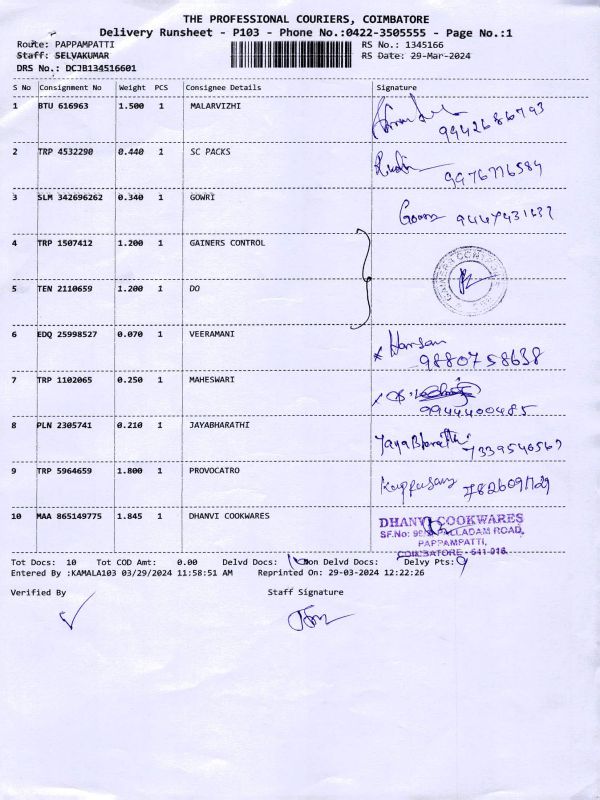 THE PROFESSIONAL COURIERS, COIMBATORE
Delivery Runsheet - P103 - Phone No.:0422-3505555 - Page No.:1
Route: PAPPAMPATTI RS No.: 1345166
Staff: SELVAKUMAR RS Date: 29-Mar-2024
DRS No.: DCJB134516601
S No Consignment No Weight PCS Consignee Details Signature
1 BTU 616963 1.500 1 MALARVIZHI
9942686793
2 TRP 4532290 0.440 1 SC PACKS
9976776584
3 SLM 342696262 0.340 1 GOWRI
4 TRP 1507412 1.200 1 GAINERS CONTROL
5 TEN 2110659 1.200 1 DO
6 EDQ 25998527 0.070 1 VEERAMANI
9880758638
7 TRP 1102065 0.250 1 MAHESWARI
9944400485
8 PLN 2305741 0.210 1 JAYABHARATHI JayaBharathi
7339540567
9 TRP 5964659 1.800 1 PROVOCATRO
10 MAA 865149775 1.845 1 DHANVI COOKWARES
DHANVI COOKWARES
PALLADAM ROAD,
PAPPAMPATTI,
COIMBATORE - 641 016.
Tot Docs: 10 Tot COD Amt: 0.00 Delvd Docs: 10 Non Delvd Docs: Delvy Pts: 9
Entered By :KAMALA103 03/29/2024 11:58:51 AM Reprinted On: 29-03-2024 12:22:26
Verified By Staff Signature